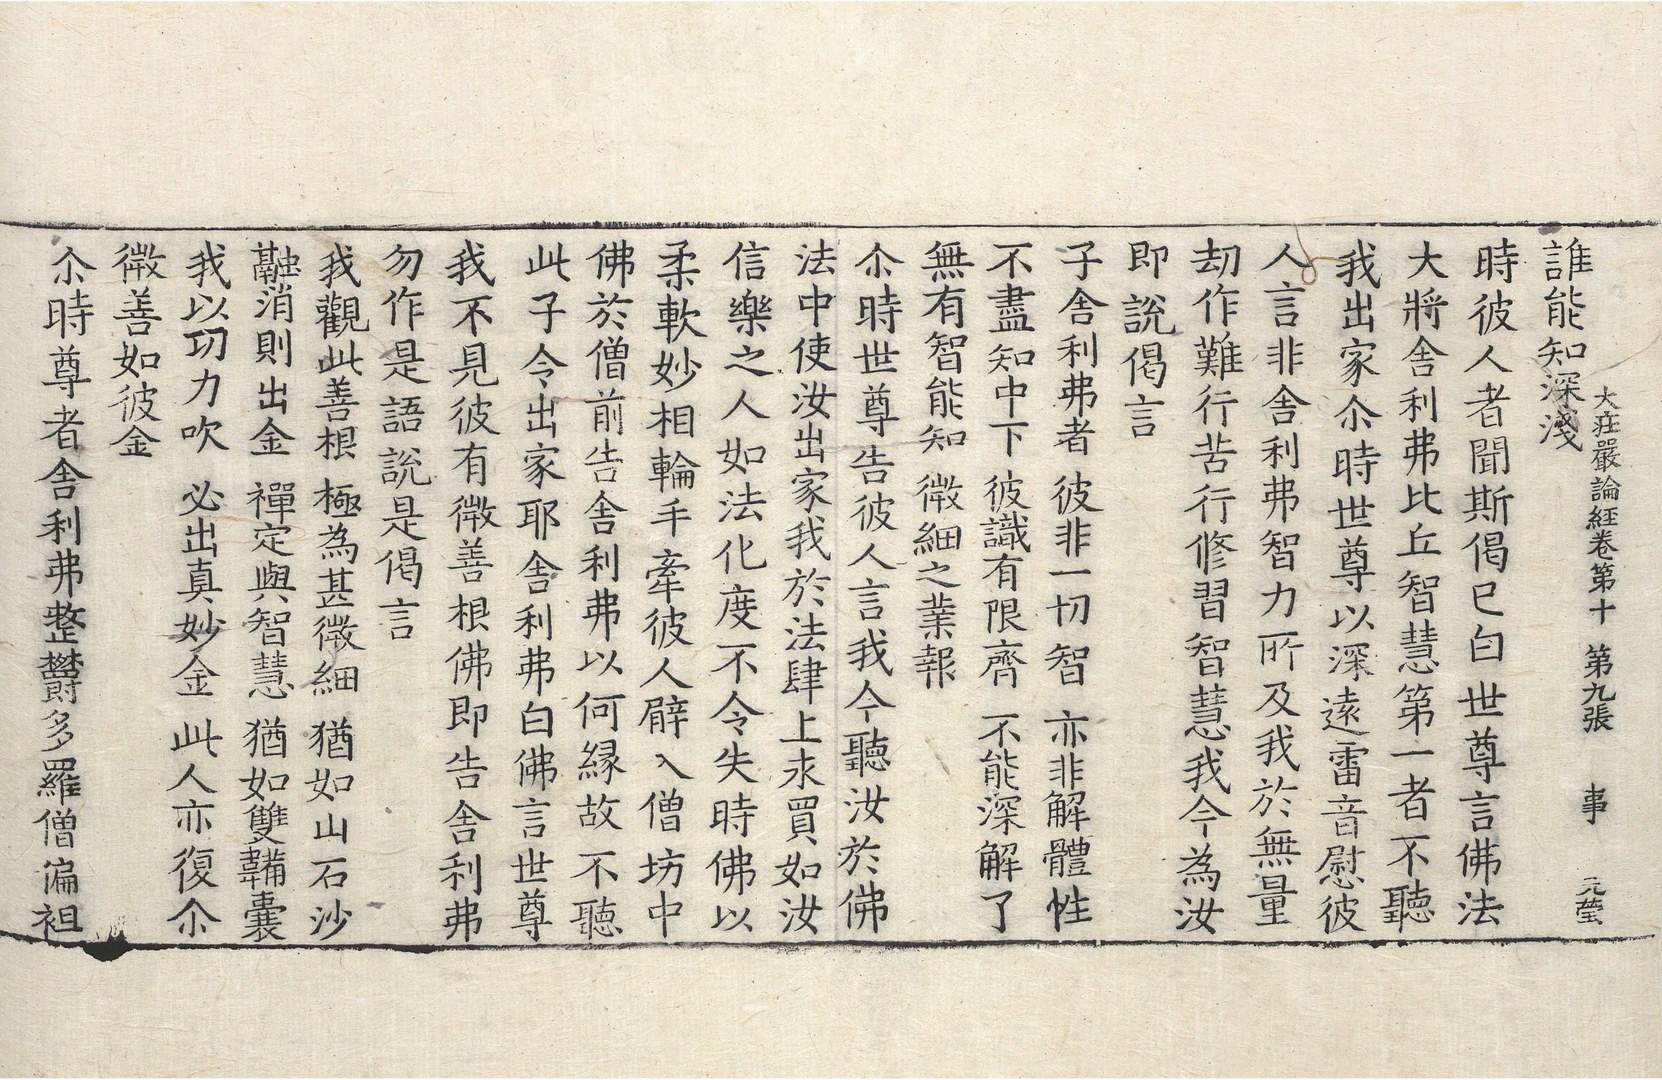 大莊嚴論經卷第十 第九張 事 元瑩
誰能知深淺
時彼人者聞斯偈已白世尊言佛法
大將舍利弗比丘智慧第一者不聽
我出家尒時世尊以深遠雷音慰彼
人言非舍利弗智力所及我於無量
劫作難行苦行修習智慧我今為汝
即說偈言
子舍利弗者 彼非一切智 亦非解體性
不盡知中下 彼識有限齊 不能深解了
無有智能知 微細之業報
尒時世尊告彼人言我今聽汝於佛
法中使汝出家我於法肆上求買如汝
信樂之人如法化度不令失時佛以
柔軟妙相輪手牽彼人臂入僧坊中
佛於僧前告舍利弗以何緣故不聽
此子令出家耶舍利弗白佛言世尊
我不見彼有微善根佛即告舍利弗
勿作是語說是偈言
我觀此善根 極為甚微細 猶如山石沙
融消則出金 禪定與智慧 猶如雙韛囊
我以功力吹 必出真妙金 此人亦復尒
微善如彼金
尒時尊者舍利弗整欝多羅僧偏袒